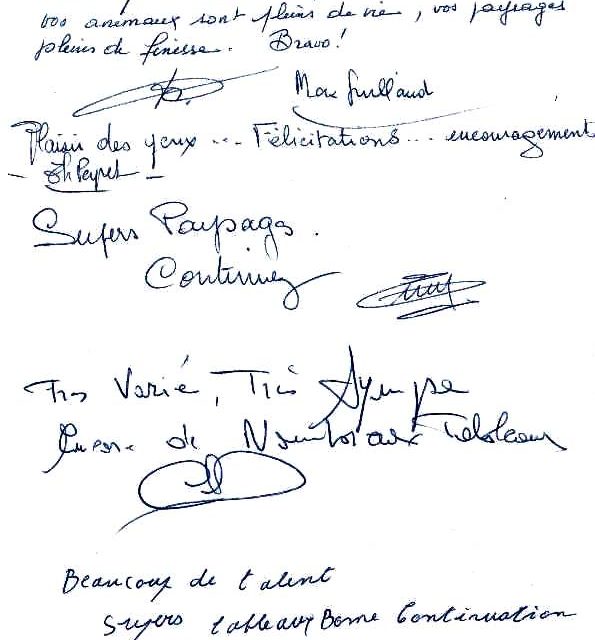 vos animaux sont pleins de vie, vos paysages
pleins de finesse. Bravo!
Max Guillaud
Plaisir des yeux ... Félicitations ... encouragement
- Th Peyret -
Supers Paysages.
Continuez
Très Varié, Très Sympa
de Nombreaux Tableaux
Beaucoup de talent
supers tableaux Bonne Continuation